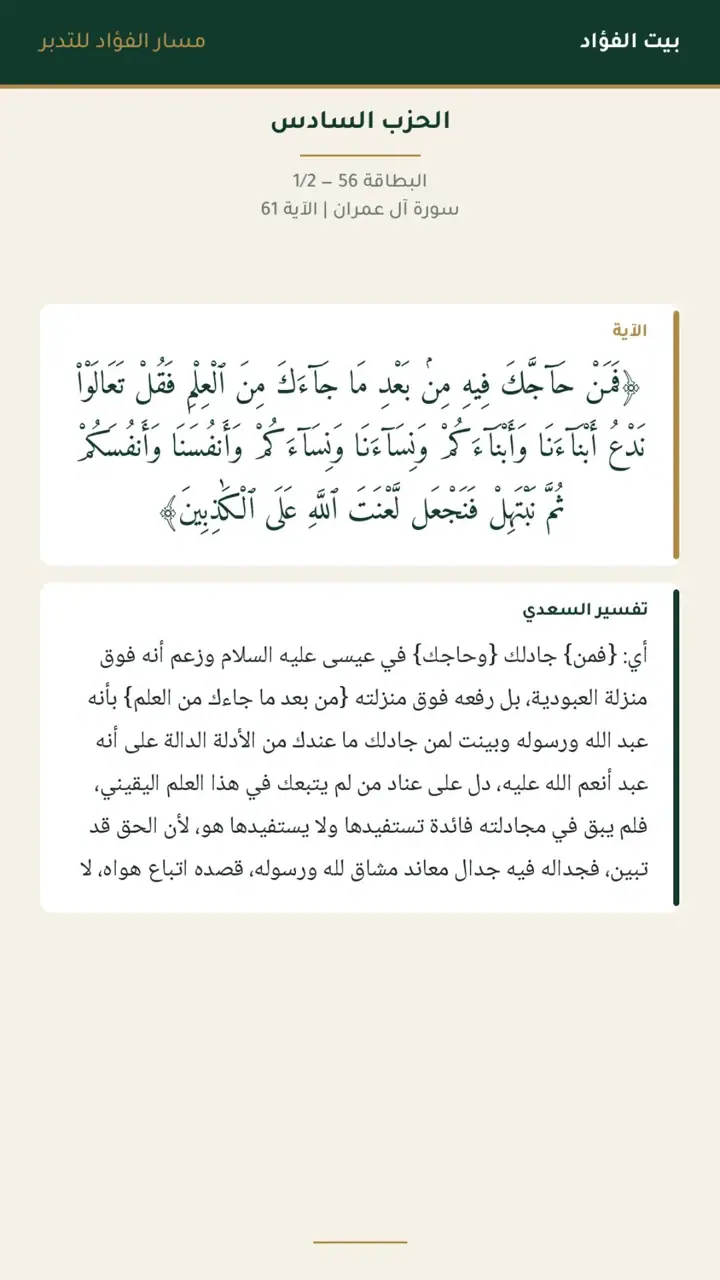 بيت الفؤاد
مسار الفؤاد للتدبر
الحزب السادس
البطاقة 56 – 1/2
سورة آل عمران | الآية 61
الآية
﴿فَمَنْ حَآجَّكَ فِيهِ مِنۢ بَعْدِ مَا جَآءَكَ مِنَ ٱلْعِلْمِ فَقُلْ تَعَالَوْا۟
نَدْعُ أَبْنَآءَنَا وَأَبْنَآءَكُمْ وَنِسَآءَنَا وَنِسَآءَكُمْ وَأَنفُسَنَا وَأَنفُسَكُمْ
ثُمَّ نَبْتَهِلْ فَنَجْعَل لَّعْنَتَ ٱللَّهِ عَلَى ٱلْكَٰذِبِينَ﴾
تفسير السعدي
أي: {فمن} جادلك {وحاجك} في عيسى عليه السلام وزعم أنه فوق
منزلة العبودية، بل رفعه فوق منزلته {من بعد ما جاءك من العلم} بأنه
عبد الله ورسوله وبينت لمن جادلك ما عندك من الأدلة الدالة على أنه
عبد أنعم الله عليه، دل على عناد من لم يتبعك في هذا العلم اليقيني،
فلم يبق في مجادلته فائدة تستفيدها ولا يستفيدها هو، لأن الحق قد
تبين، فجداله فيه جدال معاند مشاق لله ورسوله، قصده اتباع هواه، لا